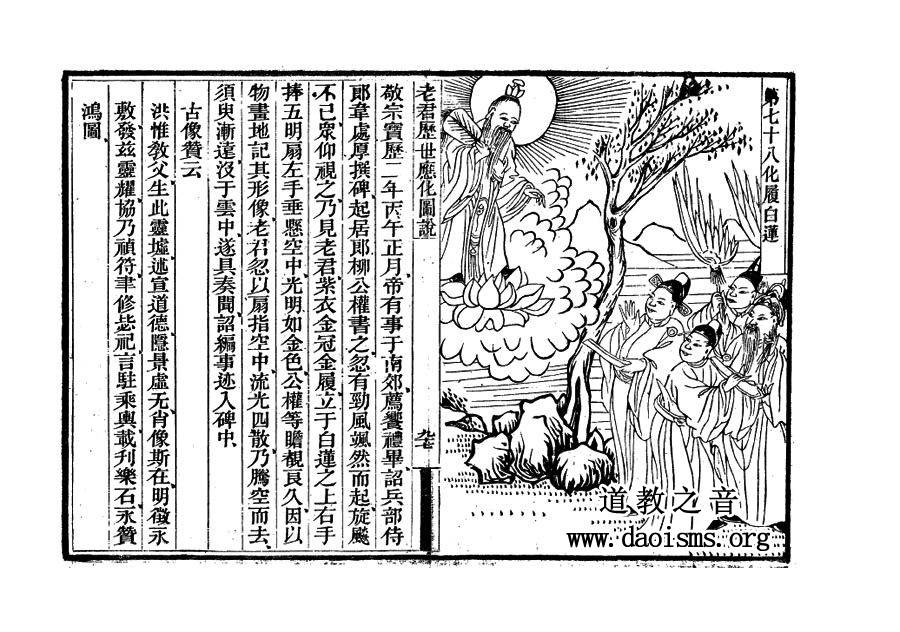 第七十八化履白蓮
老君歷世應化圖說
敬宗寶歷二年丙午正月帝有事于南郊薦饗禮畢詔兵部侍
郎韋處厚撰碑起居郎柳公權書之忽有勁風颯然而起旋飈
不已眾仰視之乃見老君紫衣金冠金履立于白蓮之上右手
捧五明扇左手垂懸空中光明如金色公權等瞻覩良久因以
物畫地記其形像老君忽以扇指空中流光四散乃騰空而去
須臾漸遠沒于雲中遂具奏聞詔編事迹入碑中
古像贊云
洪惟教父生此靈墟述宣道德隱景虛无肖像斯在明徵永
敷發茲靈耀協乃禎符聿修毖祀言駐乘輿載刊樂石永贊
鴻圖
道教之音
www.daoisms.org